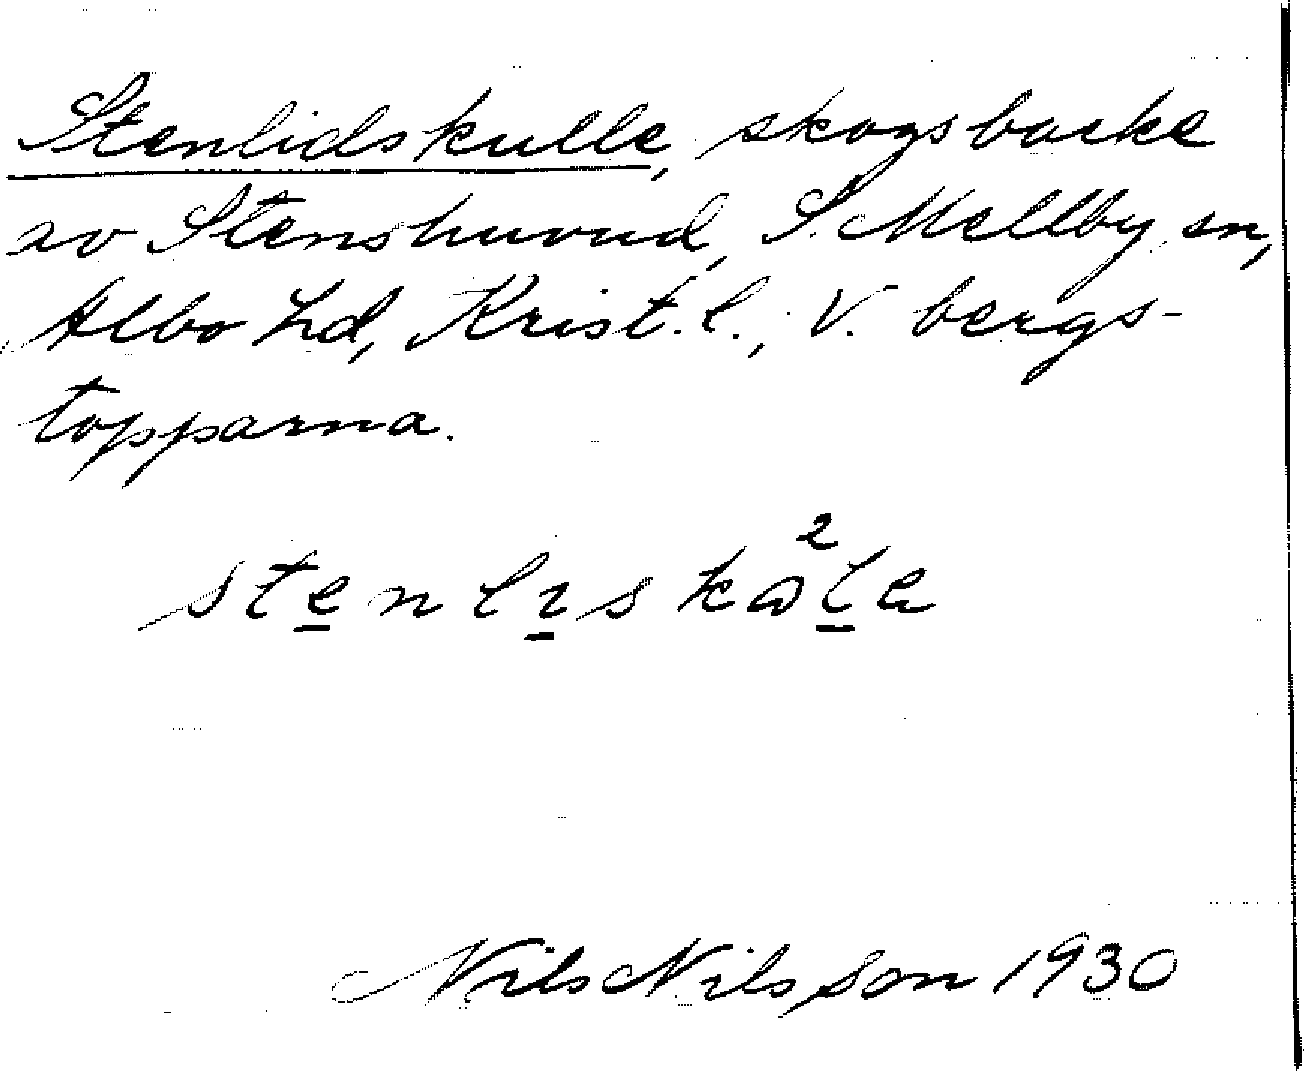 Stenlidskulle, skogsbacke
av Stenshuvud, S. Mellby sn,
Albo hd, Krist. l., V. bergs-
topparna.
Nils Nilsson 1930